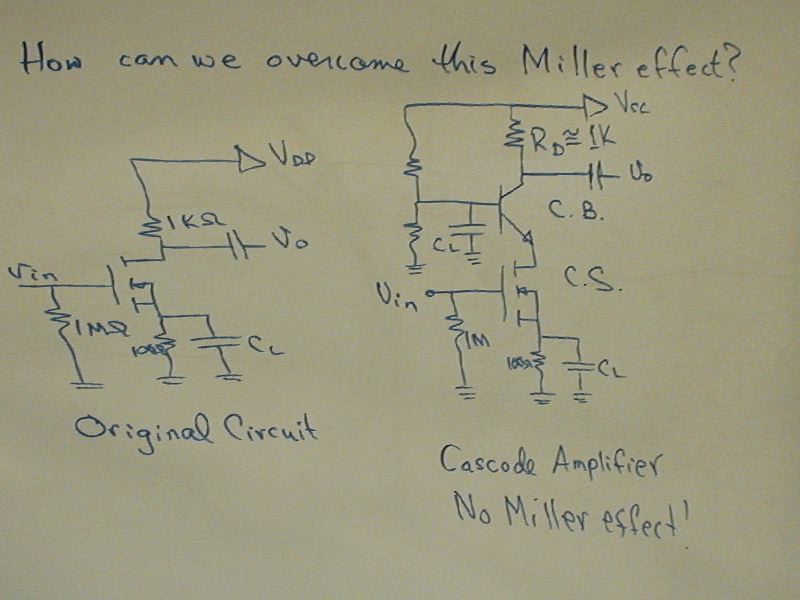 How can we overcome this Miller effect?
VDD
1KΩ
Vo
Vin
1MΩ
100Ω
CL
Original Circuit
Vcc
RD≅1K
Vo
C.B.
CL
C.S.
Vin
1M
100Ω
CL
Cascode Amplifier
No Miller effect!